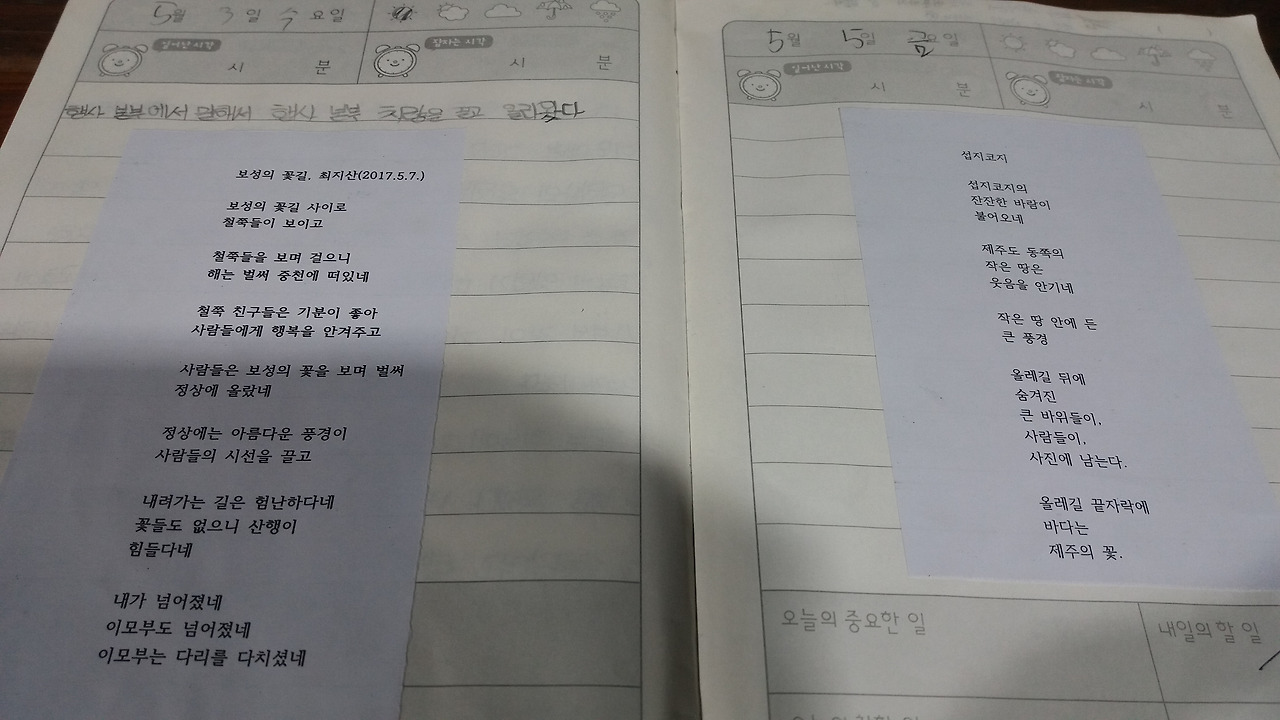 5월 3일 수요일
일어난 시각
잠자는 시각
시 분
시 분
행사 본부에서 말해서 행사 본부 차량은 끌고 올라왔다
보성의 꽃길, 최지산(2017.5.7.)
보성의 꽃길 사이로
철쭉들이 보이고
철쭉들을 보며 걸으니
해는 벌써 중천에 떠있네
철쭉 친구들은 기분이 좋아
사람들에게 행복을 안겨주고
사람들은 보성의 꽃을 보며 벌써
정상에 올랐네
정상에는 아름다운 풍경이
사람들의 시선을 끌고
내려가는 길은 험난하다네
꽃들도 없으니 산행이
힘들다네
내가 넘어졌네
이모부도 넘어졌네
이모부는 다리를 다치셨네
5월 5일 금요일
일어난 시각
잠자는 시각
시 분
시 분
섭지코지
섭지코지의
잔잔한 바람이
불어오네
제주도 동쪽의
작은 땅은
웃음을 안기네
작은 땅 안에 든
큰 풍경
올레길 뒤에
숨겨진
큰 바위들이,
사람들이,
사진에 남는다.
올레길 끝자락에
바다는
제주의 꽃.
오늘의 중요한 일
내일의 할 일